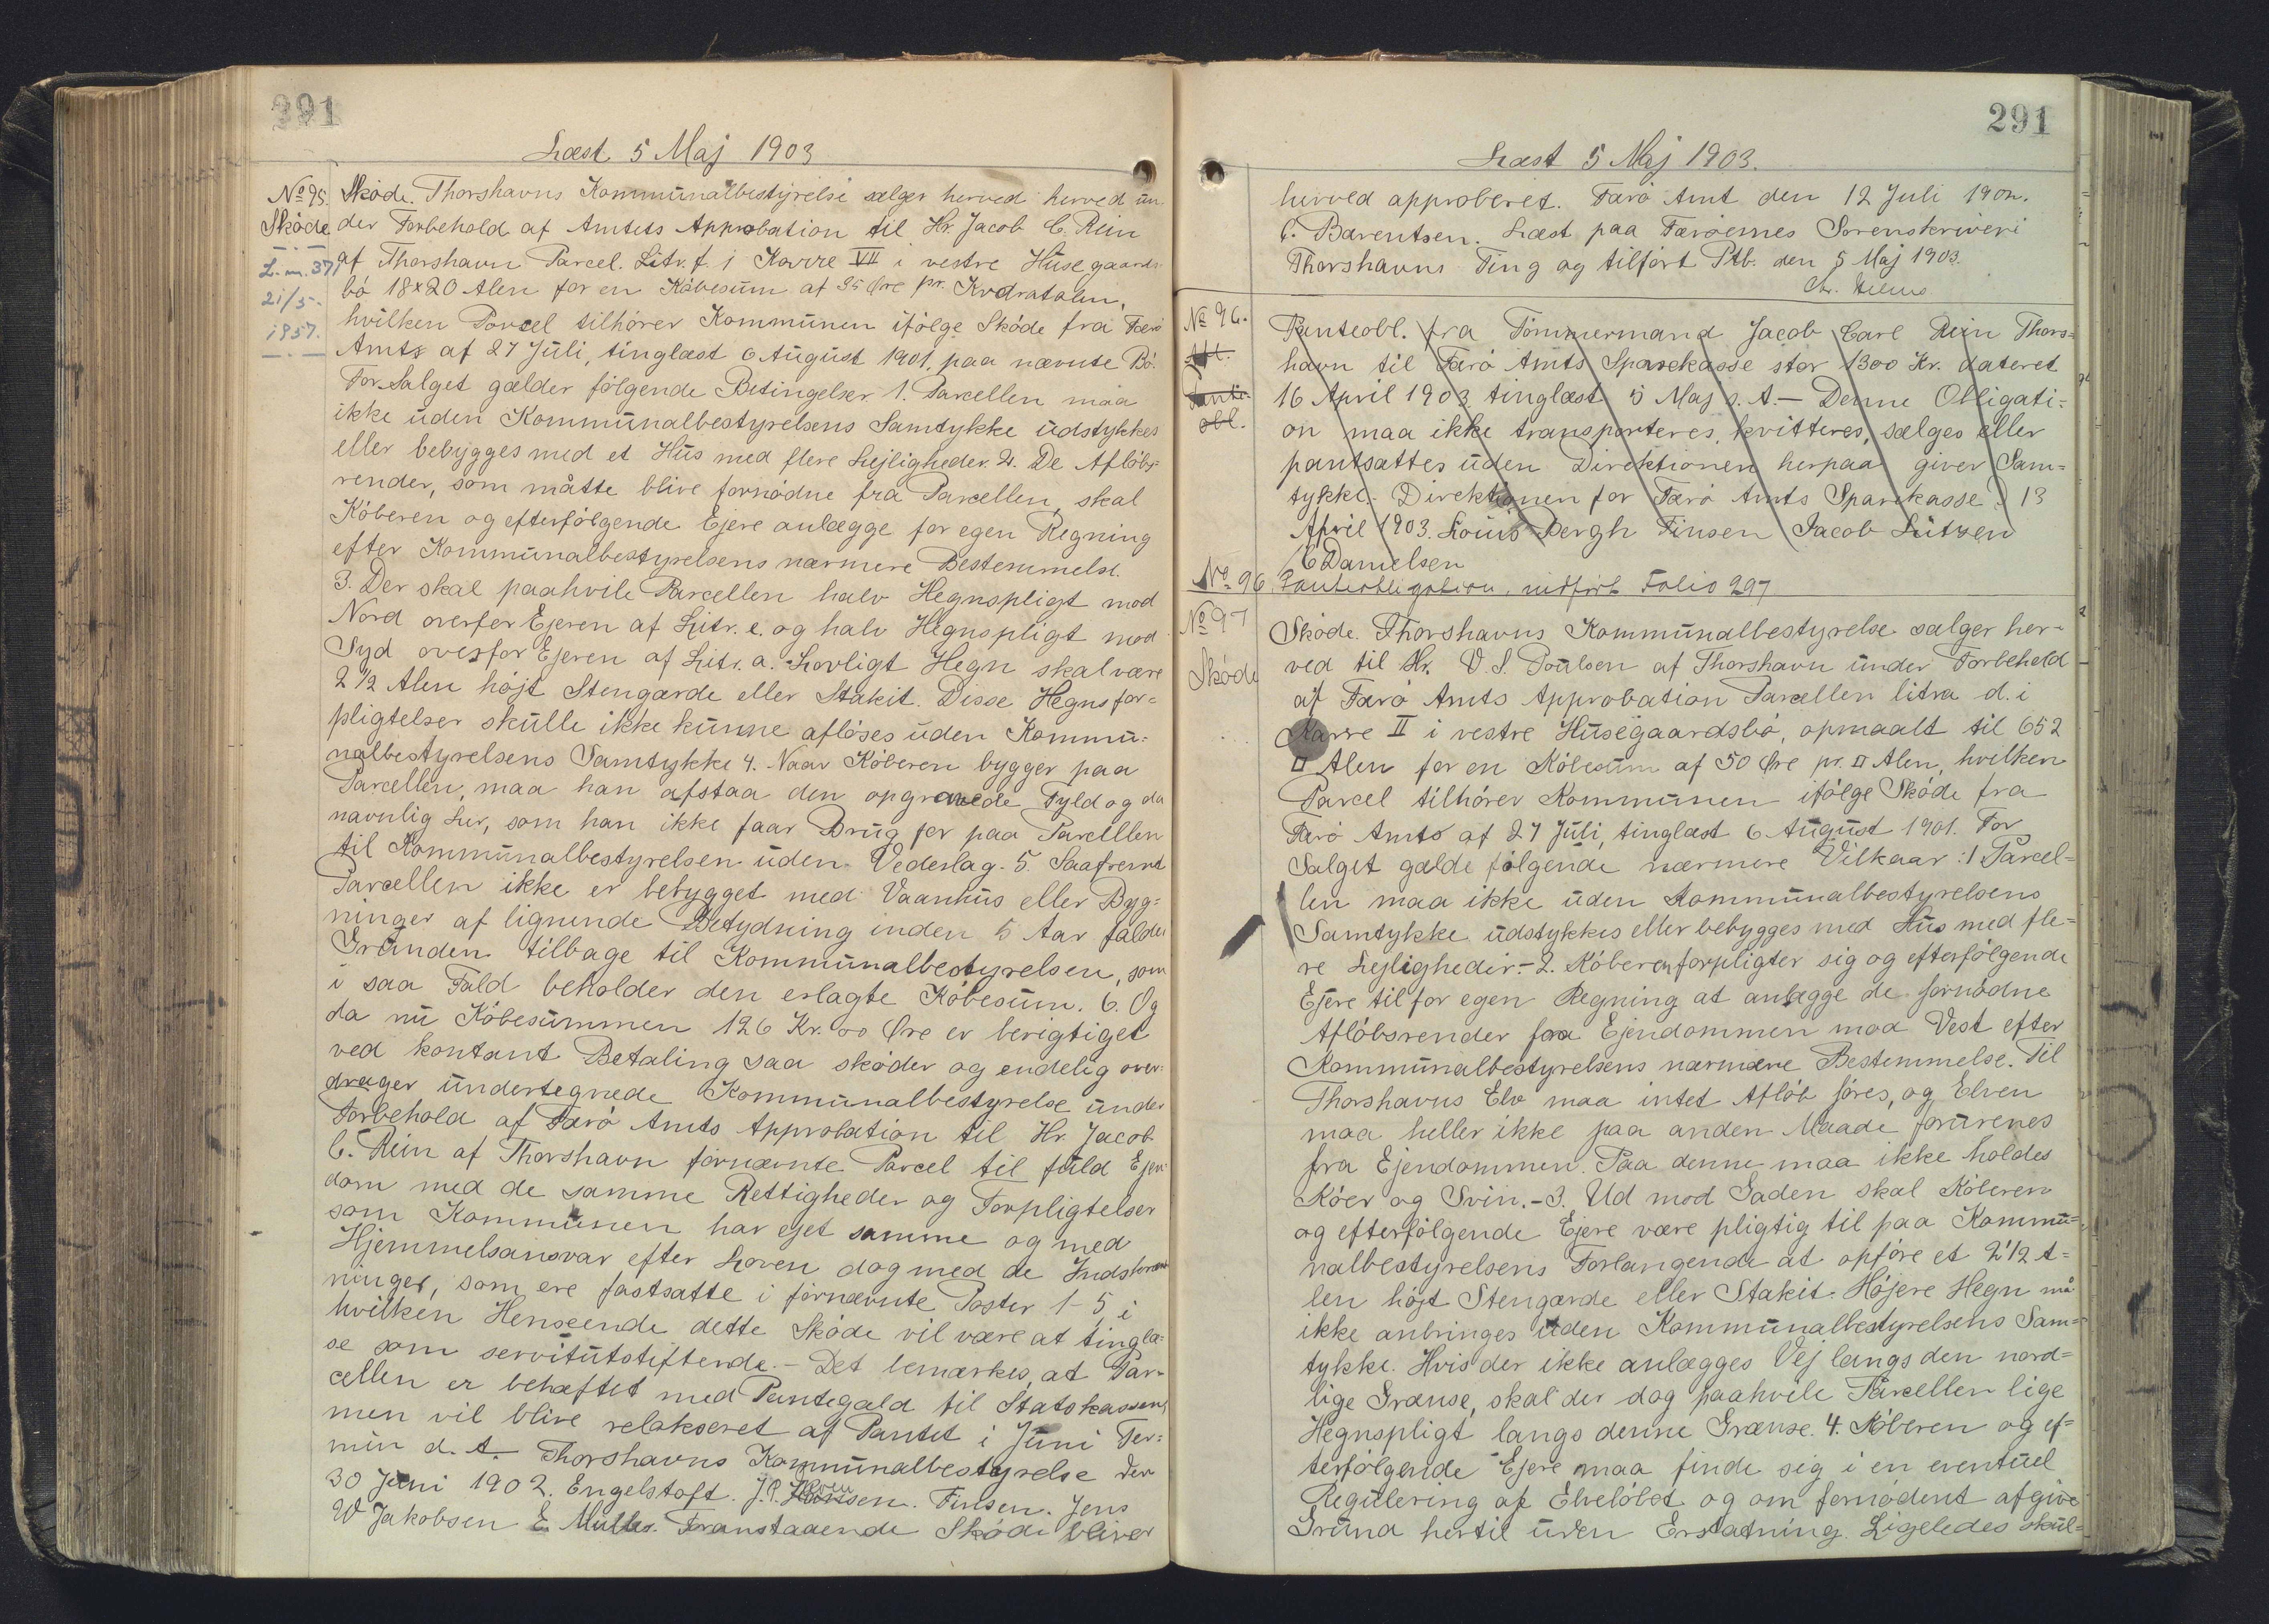 291
Læst 5 Maj 1903
No 95. Skøde. Thorshavns Kommunalbestyrelse sælger herved herved un-
Skøde der Forbehold af Amtets Approbation til Hr. Jacob C. Rein
L. nr. 371 af Thorshavn Parcel. Litr. f. i Karre VII i vestre Husegaards-
21/5- bø 18x20 Alen for en Købesum af 35 Øre pr. Kvdratalen,
1957. hvilken Parcel tilhører Kommunen ifølge Skøde fra Færø
Amts af 27 Juli, tinglæst 6 August 1901, paa nævnte Bø.
For Salget gælder følgende Betingelser 1. Parcellen maa
ikke uden Kommunalbestyrelsens Samtykke udstykkes
eller bebygges med et Hus med flere Lejligheder. 2. De Afløbs-
render, som måtte blive fornødne fra Parcellen, skal
Køberen og efterfølgende Ejere anlægge for egen Regning
efter Kommunalbestyrelsens nærmere Bestemmelse.
3. Der skal paahvile Parcellen halv Hegnspligt mod
Nord overfor Ejeren af Litr. e. og halv Hegnspligt mod
Syd overfor Ejeren af Litr. a. Lovligt Hegn skal være
2 1/2 Alen højt Stengærde eller Stakit. Disse Hegnsfor=
pligtelser skulle ikke kunne afløses uden Kommu=
nalbestyrelsens Samtykke 4. Naar Køberen bygger paa
Parcellen, maa han afstaa den opgravede Fyld og da
navnlig Ler, som han ikke faar Brug for paa Parcellen
til Kommunalbestyrelsen uden Vederlag. 5. Saafremt
Parcellen ikke er bebygget med Vaanhus eller Byg=
ninger af lignende Betydning inden 5 Aar falder
Grunden tilbage til Kommunalbestyrelsen, som
i saa Fald beholder den erlagte Købesum. 6. Og
da nu Købesummen 126 Kr. 00 Øre er berigtiget
ved kontant Betaling saa skøder og endelig over-
drager undertegnede Kommunalbestyrelse under
Forbehold af Færø Amts Approbation til Hr. Jacob
C. Rein af Thorshavn førnævnte Parcel til fuld Ejen-
dom med de samme Rettigheder og Forpligtelser
som Kommunen har ejet samme og med
Hjemmelsansvar efter Loven dog med de Indskrænk
ninger, som ere fastsatte i førnævnte Poster 1-5, i
hvilken Henseende dette Skøde vil være at tinglæ-
se som servitutstiftende. - Det bemærkes, at Par-
cellen er behæftet med Pantegæld til Statskassen,
men vil blive relakseret af Pantet i Juni Ter=
min d. A. Thorshavns Kommunalbestyrelse den
30 Juni 1902. Engelstoft. J. P. Finsen. Jens
W Jakobsen E. Müller. Foranstaaende Skøde bliver
291
Læst 5 Maj 1903.
herved approberet. Færø Amt den 12 Juli 1902.
C. Bærentsen. Læst paa Færøernes Sorenskriveri
Thorshavns Ting og tilført Ptb. den 5 Maj 1903.
No 96. Panteobl. fra Tømmermand Jacob Carl Rein Thors=
Afl. havn til Færø Amts Sparekasse stor 1300 Kr. dateret
Pante- 16 April 1903 tinglæst 5 Maj s. A. — Denne Obligati=
obl. on maa ikke transporteres, kvitteres, sælges eller
pantsættes uden Direktionen herpaa giver Sam=
tykke. Direktionen for Færø Amts Sparekasse D. 13
April 1903. Louis Bergh Finsen Jacob Lützen
C Danielsen
No 96. Panteobligation, indført Folio 297
No 97 Skøde. Thorshavns Kommunalbestyrelse sælger her-
Skøde ved til Hr. V. S. Poulsen af Thorshavn under Forbehold
af Færø Amts Approbation Parcellen litra d. i
Karre II i vestre Husegaardsbø, opmaalt til 652
□ Alen for en Købesum af 50 Øre pr. □ Alen, hvilken
Parcel tilhører Kommunen ifølge Skøde fra
Færø Amts af 27 Juli, tinglæst 6 August 1901. For
Salget gælde følgende nærmere Vilkaar: 1. Parcel=
len maa ikke uden Kommunalbestyrelsens
Samtykke udstykkes eller bebygges med Hus med fle=
re Lejligheder. - 2. Køberen forpligter sig og efterfølgende
Ejere til for egen Regning at anlægge de fornødne
Afløbsrender fra Ejendommen mod Vest efter
Kommunalbestyrelsens nærmere Bestemmelse. Til
Thorshavns Elv maa intet Afløb føres, og Elven
maa heller ikke paa anden Maade forurenes
fra Ejendommen. Paa denne maa ikke holdes
Køer og Svin. - 3. Ud mod Gaden skal Køberen
og efterfølgende Ejere være pligtig til paa Kommu=
nalbestyrelsens Forlangende at opføre et 2 1/2 A=
len højt Stengærde eller Stakit. Højere Hegn må
ikke anbringes uden Kommunalbestyrelsens Sam=
tykke. Hvis der ikke anlægges Vej langs den nord=
lige Grænse, skal der dog paahvile Parcellen lige
Hegnspligt langs denne Grænse. 4. Køberen og ef=
terfølgende Ejere maa finde sig i en eventuel
Regulering af Elveløbet og om fornødent afgive
Grund hertil uden Erstatning. Ligeledes skul=